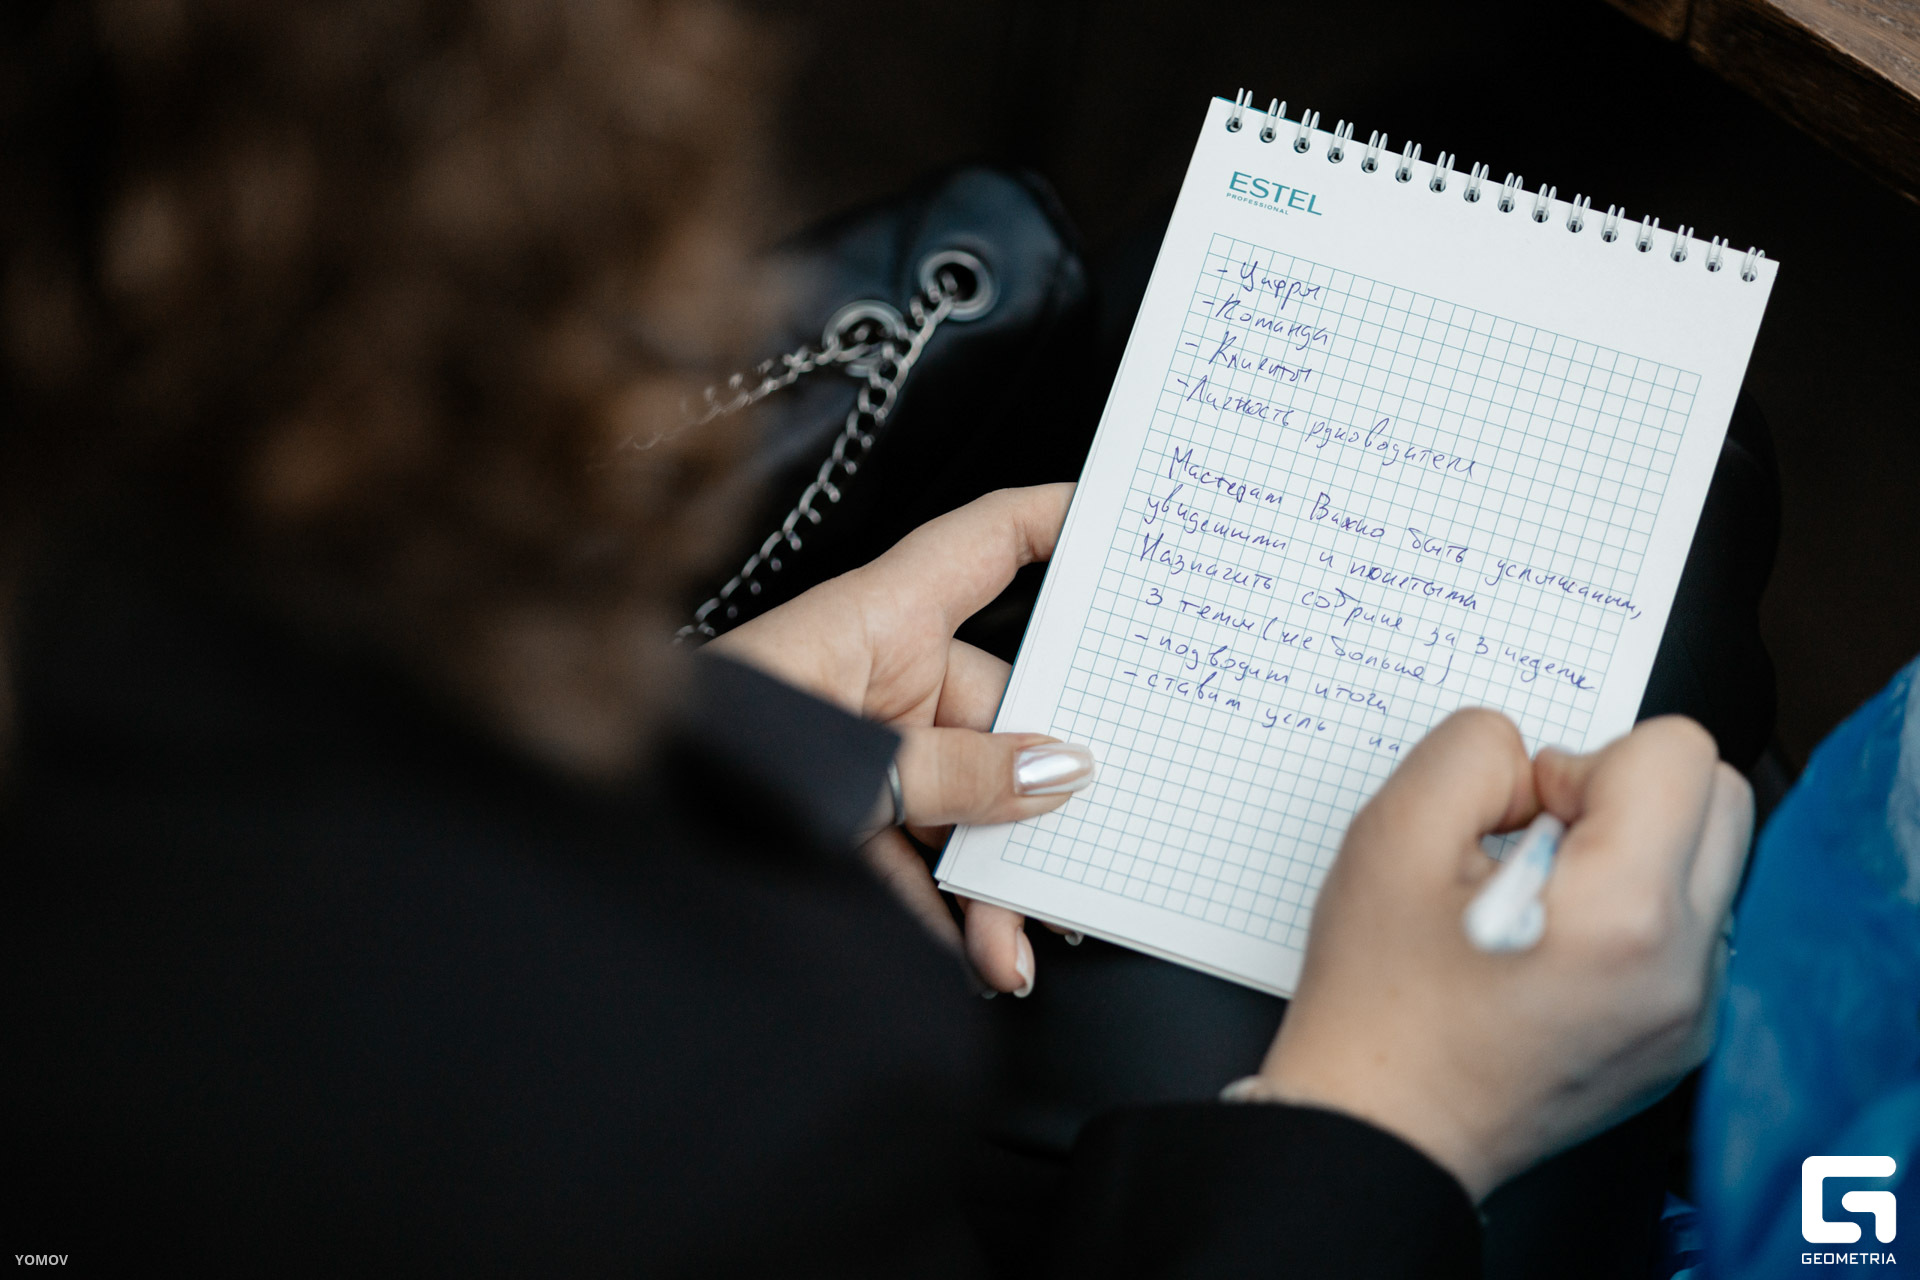 ESTEL
PROFESSIONAL
- Цифры
- Команда
- Клиенты
- Личность руководителя
Мастерам Важно быть услышаными,
увидеными и понятыми
Назначить собрание за 3 недели
3 темы (не больше)
- подводим итоги
- ставим цель на
YOMOV
GEOMETRIA